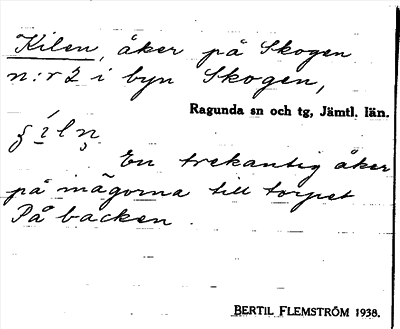 Kilen, åker på Skogen
n:r 2 i byn Skogen,
Ragunda sn och tg, Jämtl. län.
En trekantig åker
på inägorna till torpet
På backen.
BERTIL FLEMSTRÖM 1938.